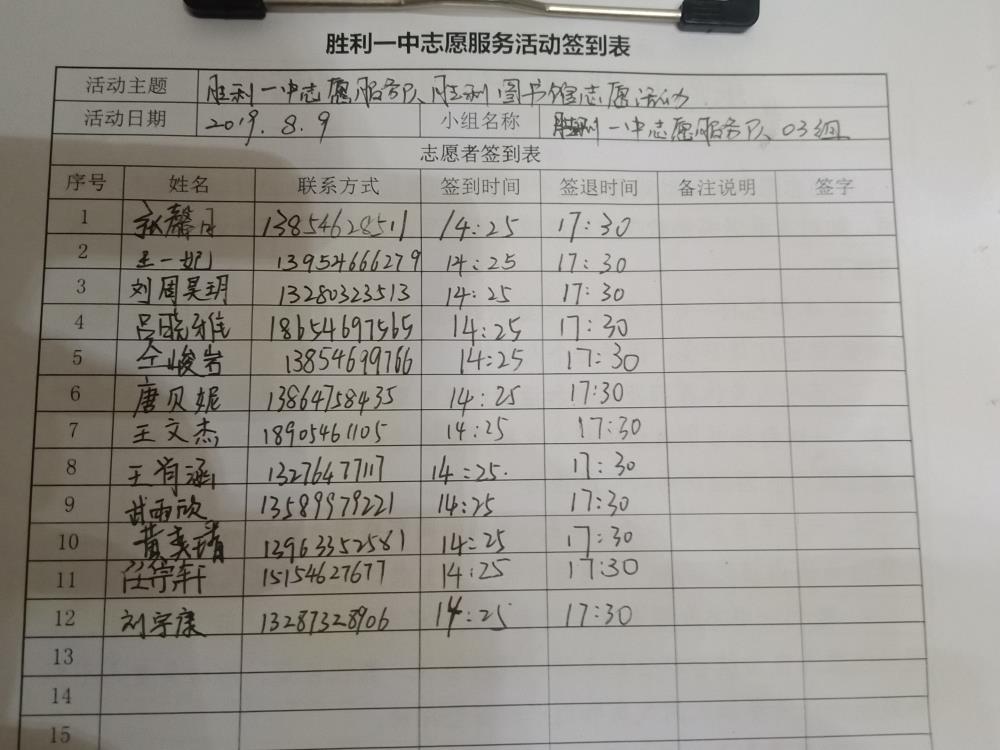 胜利一中志愿服务活动签到表
活动主题 胜利一中志愿服务队胜利图书馆志愿活动
活动日期 2019.8.9 小组名称 胜利一中志愿服务队03组
志愿者签到表
序号 姓名 联系方式 签到时间 签退时间 备注说明 签字
1 馨月 13854628511 14:25 17:30
2 王一妃 13954666279 14:25 17:30
3 刘周昊玥 13280323513 14:25 17:30
4 吕晓雅 18654697565 14:25 17:30
5 仝峻岩 13854699766 14:25 17:30
6 唐贝妮 13864758435 14:25 17:30
7 王文杰 18905461105 14:25 17:30
8 王肖涵 13276477117 14:25. 17:30
9 武雨欣 13589979221 14:25 17:30
10 黄奕 13963352581 14:25 17:30
11 任 轩 15154627677 14:25 17:30
12 刘宇康 13287328906 14:25 17:30
13
14
15